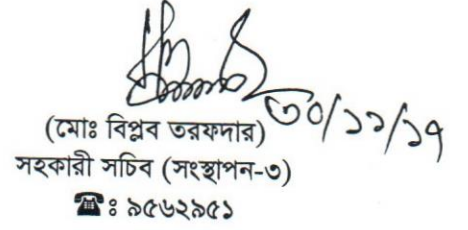 ৩০/১১/১৭
(মোঃ বিপ্লব তরফদার)
সহকারী সচিব (সংস্থাপন-৩)
☎ঃ ৯৫৬২৯৫১